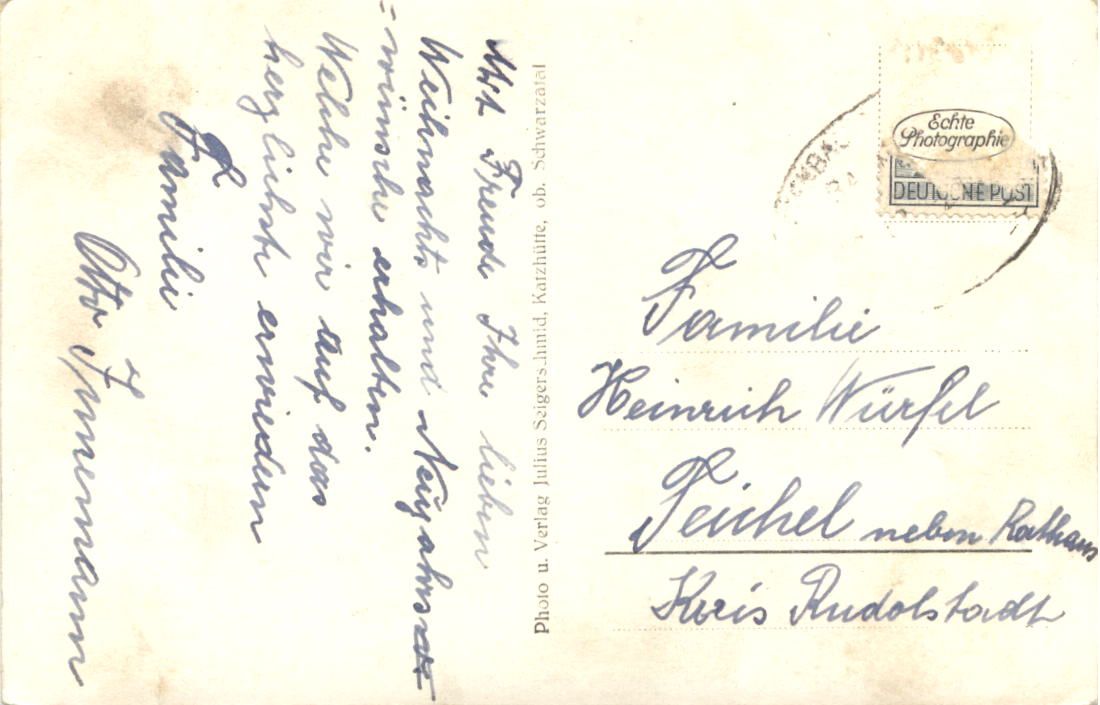 Mit Freude Ihre lieben
Weihnachts und Neujahrs
=wünsche erhalten.
Welche wir auf das
herzlichste erwiedern
Familie
Otto
Photo u. Verlag Julius Seigerschmid, Katzhütte, ob. Schwarzatal
Echte
Photographie
DEUTSCHE POST
Familie
Heinrich Würfel
Teichel neben Rathaus
Kreis Rudolstadt